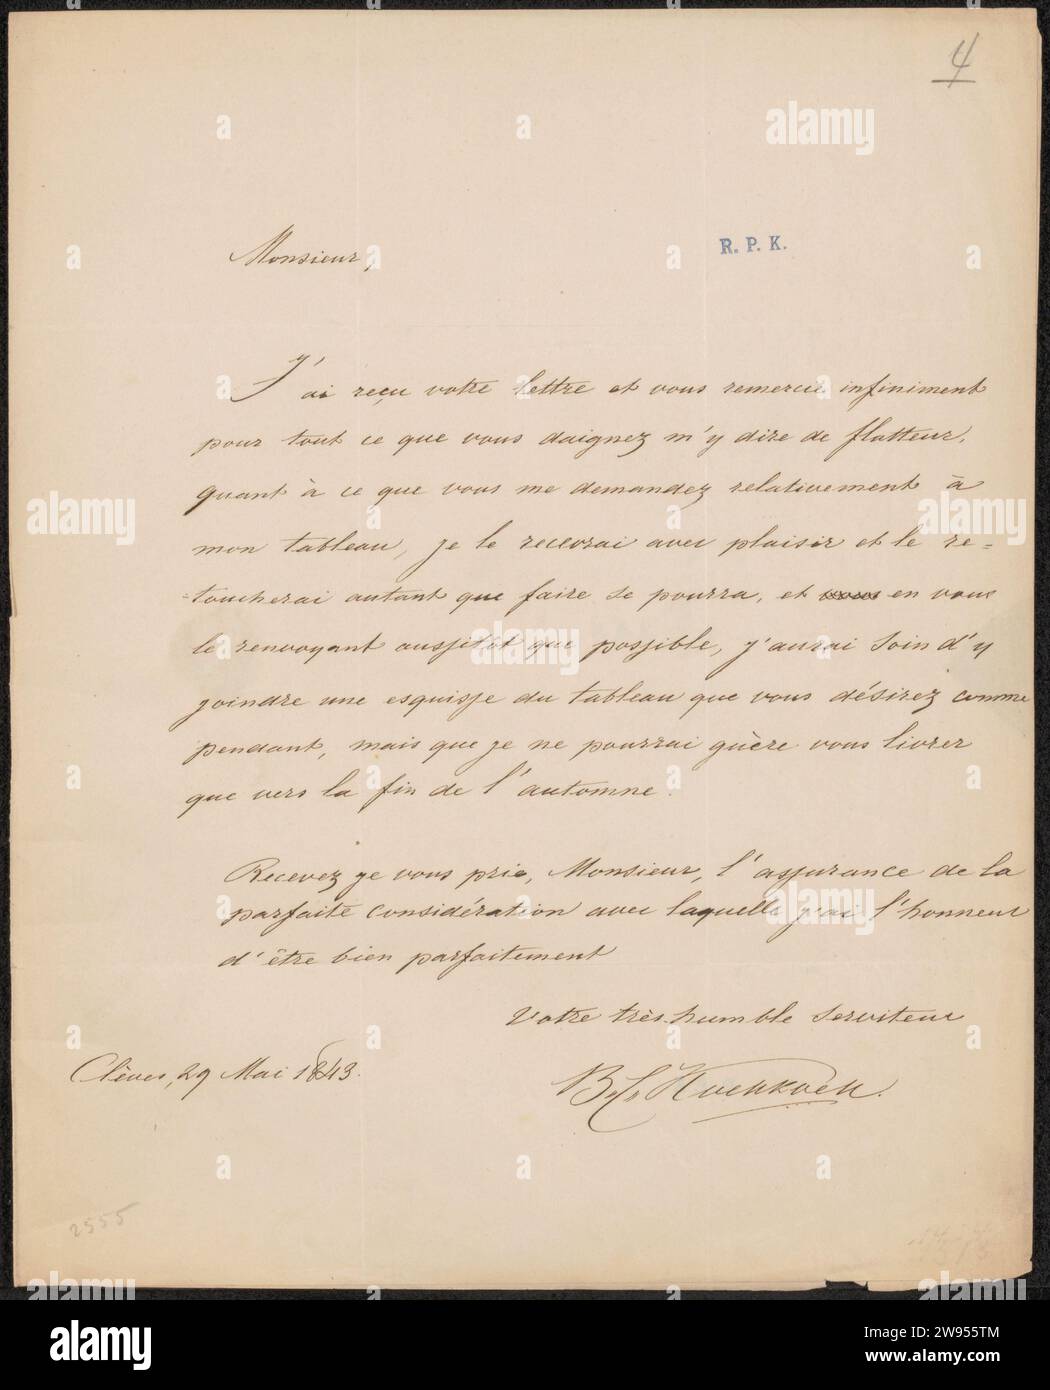 4
R. P. K.
Monsieur,
J'ai reçu votre lettre et vous remercie infiniment
pour tout ce que vous daignez m'y dire de flatteur.
quant à ce que vous me demandez relativement à
mon tableau, je le recevrai avec plaisir et le re=
=toucherai autant que faire se pourra, et vous en vous
le renvoyant aussitôt que possible, j'aurai soin d'y
joindre une esquisse du tableau que vous désirez comme
pendant, mais que je ne pourrai guère vous livrer
que vers la fin de l'automne.
Recevez je vous prie, Monsieur, l'assurance de la
parfaite considération avec laquelle j'ai l'honneur
d'être bien parfaitement
Votre très humble Serviteur
Clèves, 29 Mai 1843.
B. C. Koekkoek.
2555
alamy
Image ID: 2W955TM
www.alamy.com